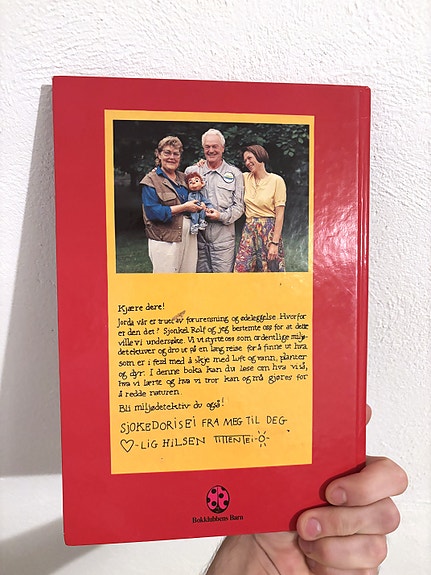 Kjære dere!
Jorda vår er truet av forurensning og ødeleggelse. Hvorfor
er den det? Sjonkel Rolf og jeg bestemte oss for at dette
ville vi undersøke. Vi utstyrte oss som ordentlige miljø-
detektiver og dro ut på en lang reise for å finne ut hva
som er i ferd med å skje med luft og vann, planter
og dyr. I denne boka kan du lese om hva vi så,
hva vi lærte og hva vi tror kan og må gjøres for
å redde naturen.
Bli miljødetektiv du også!
SJOKEDORISEI FRA MEG TIL DEG
♡-LIG HILSEN TITTENTEI
Bokklubbens Barn